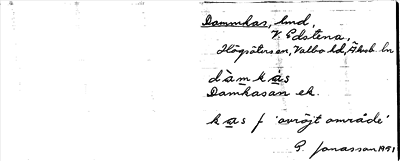 Dammkas, lmd,
V. Edstena,
Högsäter sn, Valbo hd, Älvsb. ln
dàmkás
Damkasan ek.
kas f 'avröjt område'
G. Jonasson 1991